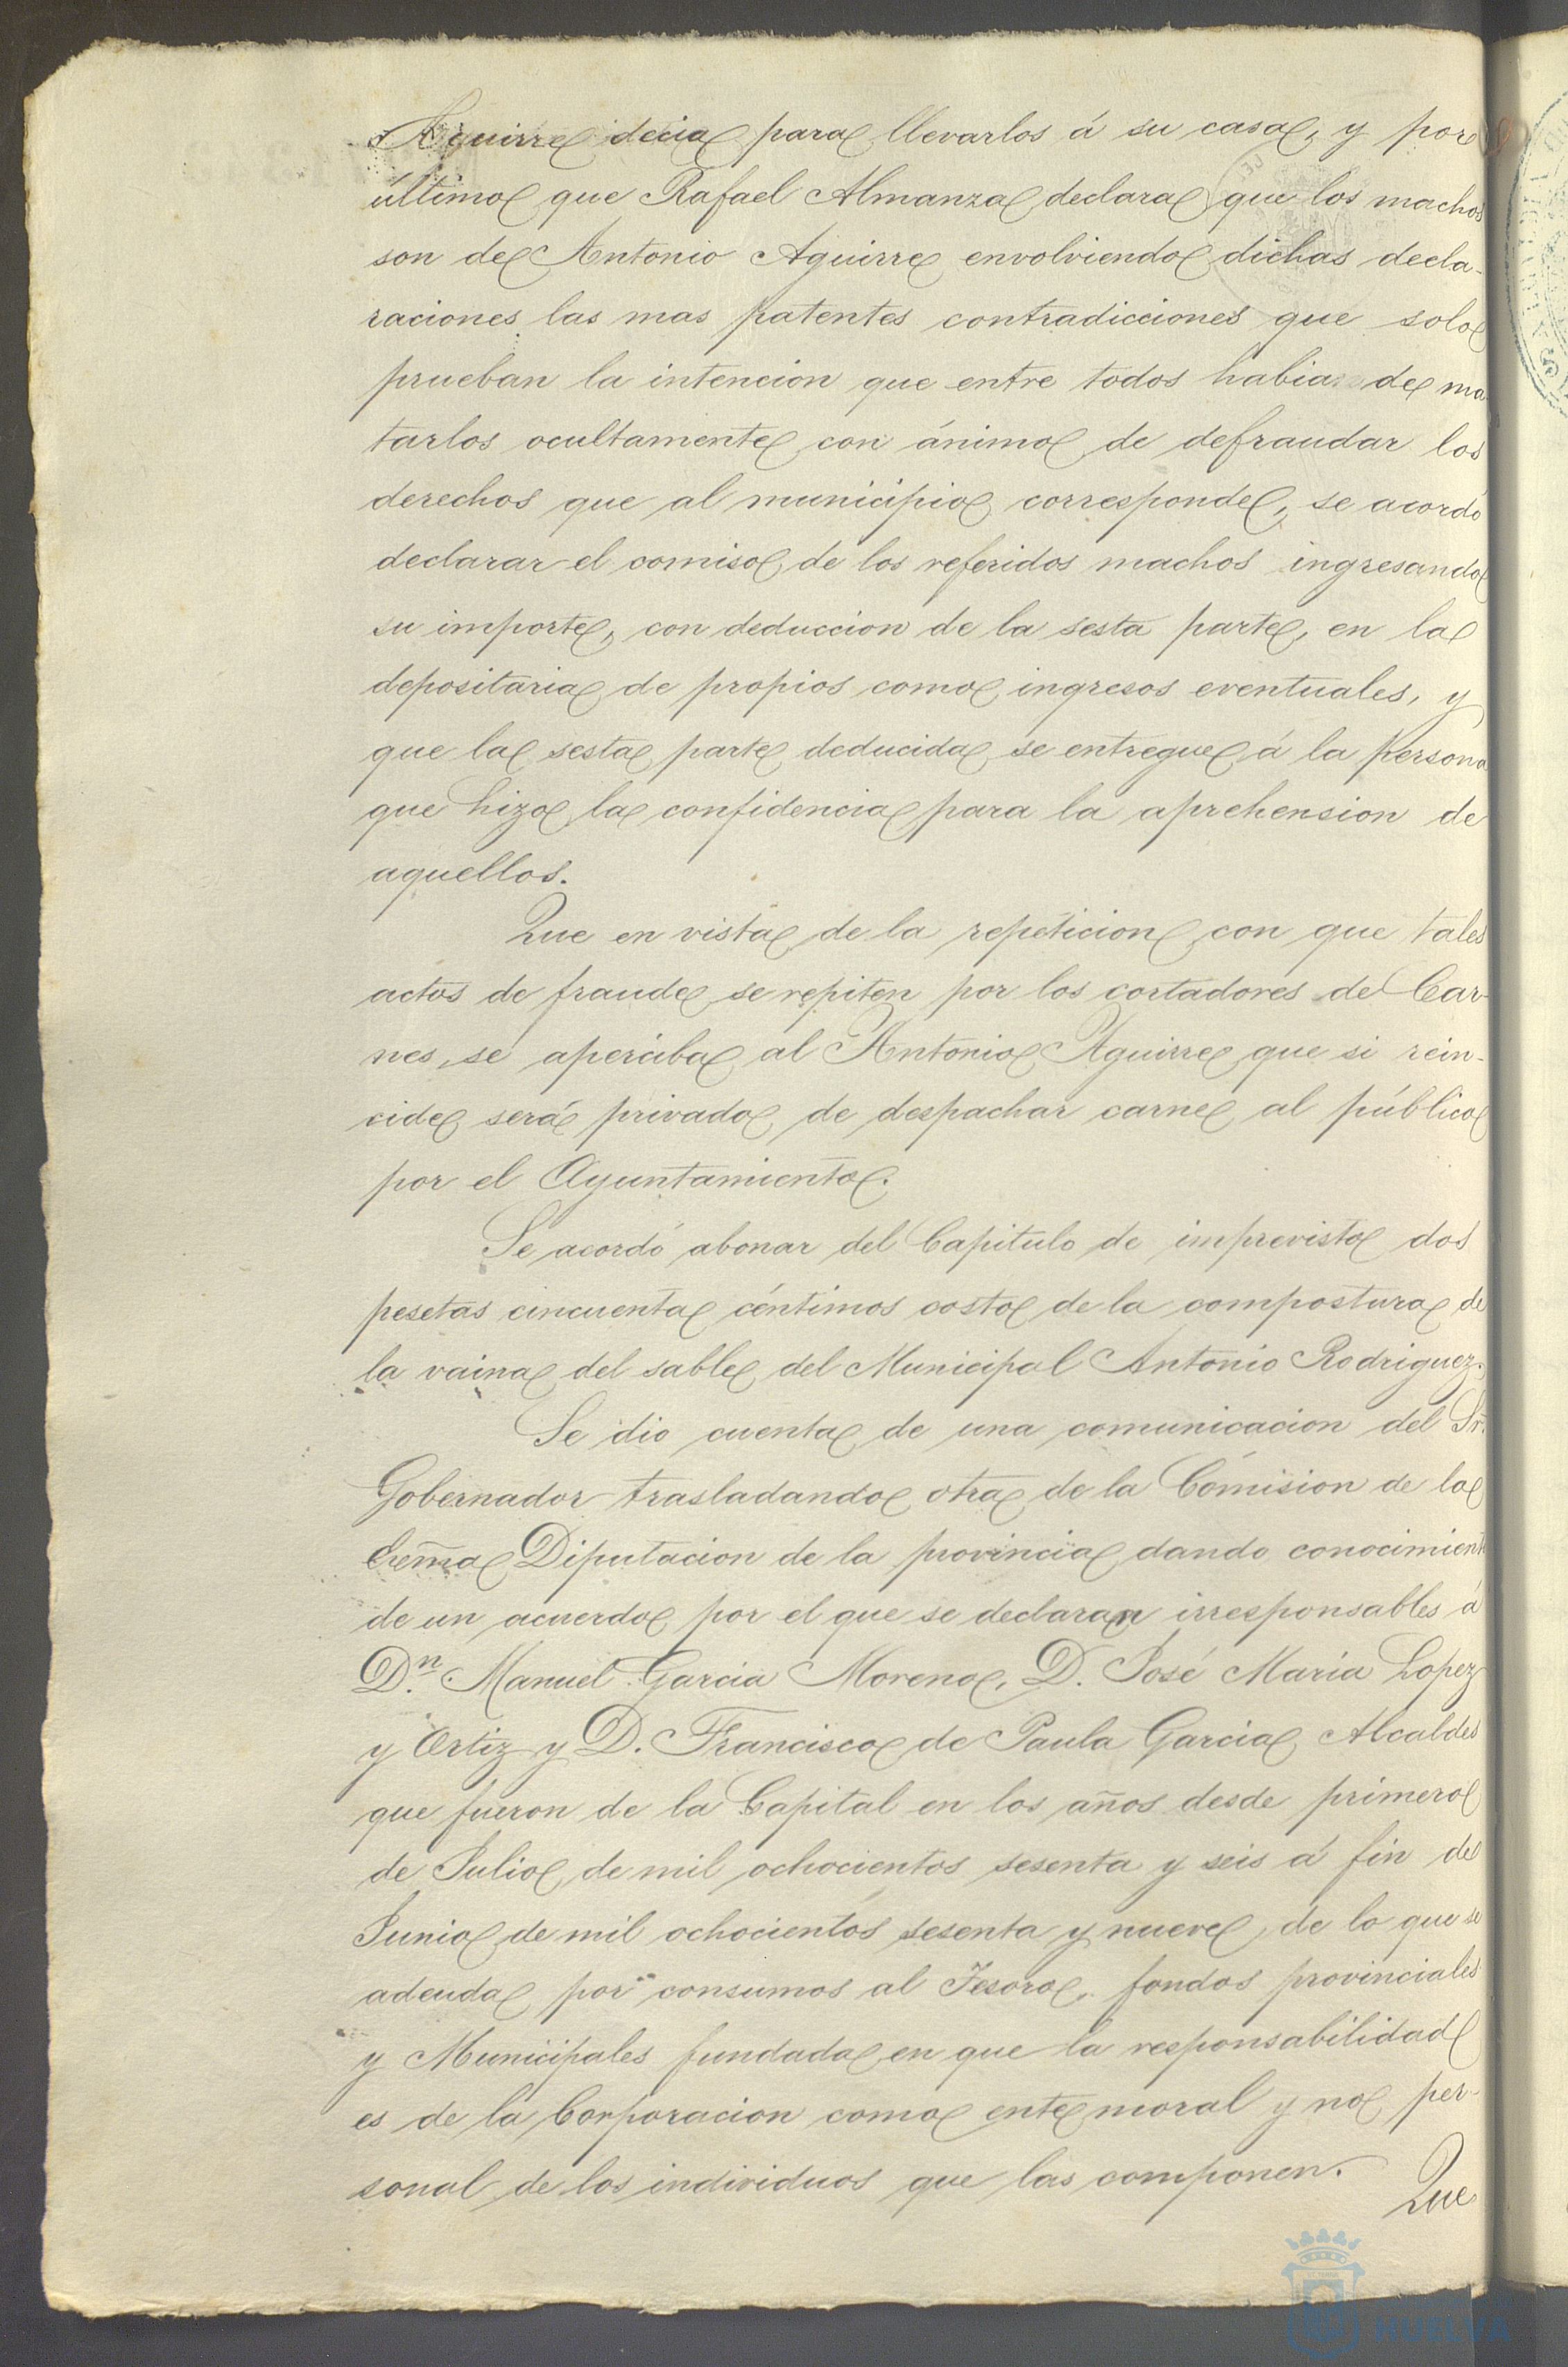 Aguirre decia para llevarlos á su casa, y por
último que Rafael Almanza declara que los machos
son de Antonio Aguirre envolviendo dichas decla-
raciones las mas patentes contradicciones que solo
prueban la intencion que entre todos habia de ma
tarlos ocultamente con ánimo de defraudar los
derechos que al municipio corresponde, se acordó
declarar el comiso de los referidos machos ingresando
su importe, con deduccion de la sesta parte, en la
depositaria de propios como ingresos eventuales, y
que la sesta parte deducida se entregue á la persona
que hizo la confidencia para la aprehension de
aquellos.
Que en vista de la repeticion con que tales
actos de fraude se repiten por los cortadores de Car-
nes, se aperciba al Antonio Aguirre que si rein-
cide será privado de despachar carne al público
por el Ayuntamiento.
Se acordó abonar del Capitulo de imprevisto dos
pesetas cincuenta céntimos costo de la compostura de
la vaina del sable del Municipal Antonio Rodriguez.
Se dio cuenta de una comunicacion del Sr.
Gobernador trasladando otra de la Comision de la
Diputacion de la provincia dando conocimient
de un acuerdo por el que se declaran irresponsables á
Dn. Manuel Garcia Moreno, D. José Maria Lopez
y Ortiz y D. Francisco de Paula Garcia Alcaldes
que fueron de la Capital en los años desde primero
de Julio de mil ochocientos sesenta y seis á fin de
Junio de mil ochocientos sesenta y nueve, de lo que se
adeuda por consumos al Tesoro, fondos provinciales
y Municipales fundada en que la responsabilidad
es de la Corporacion como ente moral y no per-
sonal de los individuos que las componen.
Que
HUELVA